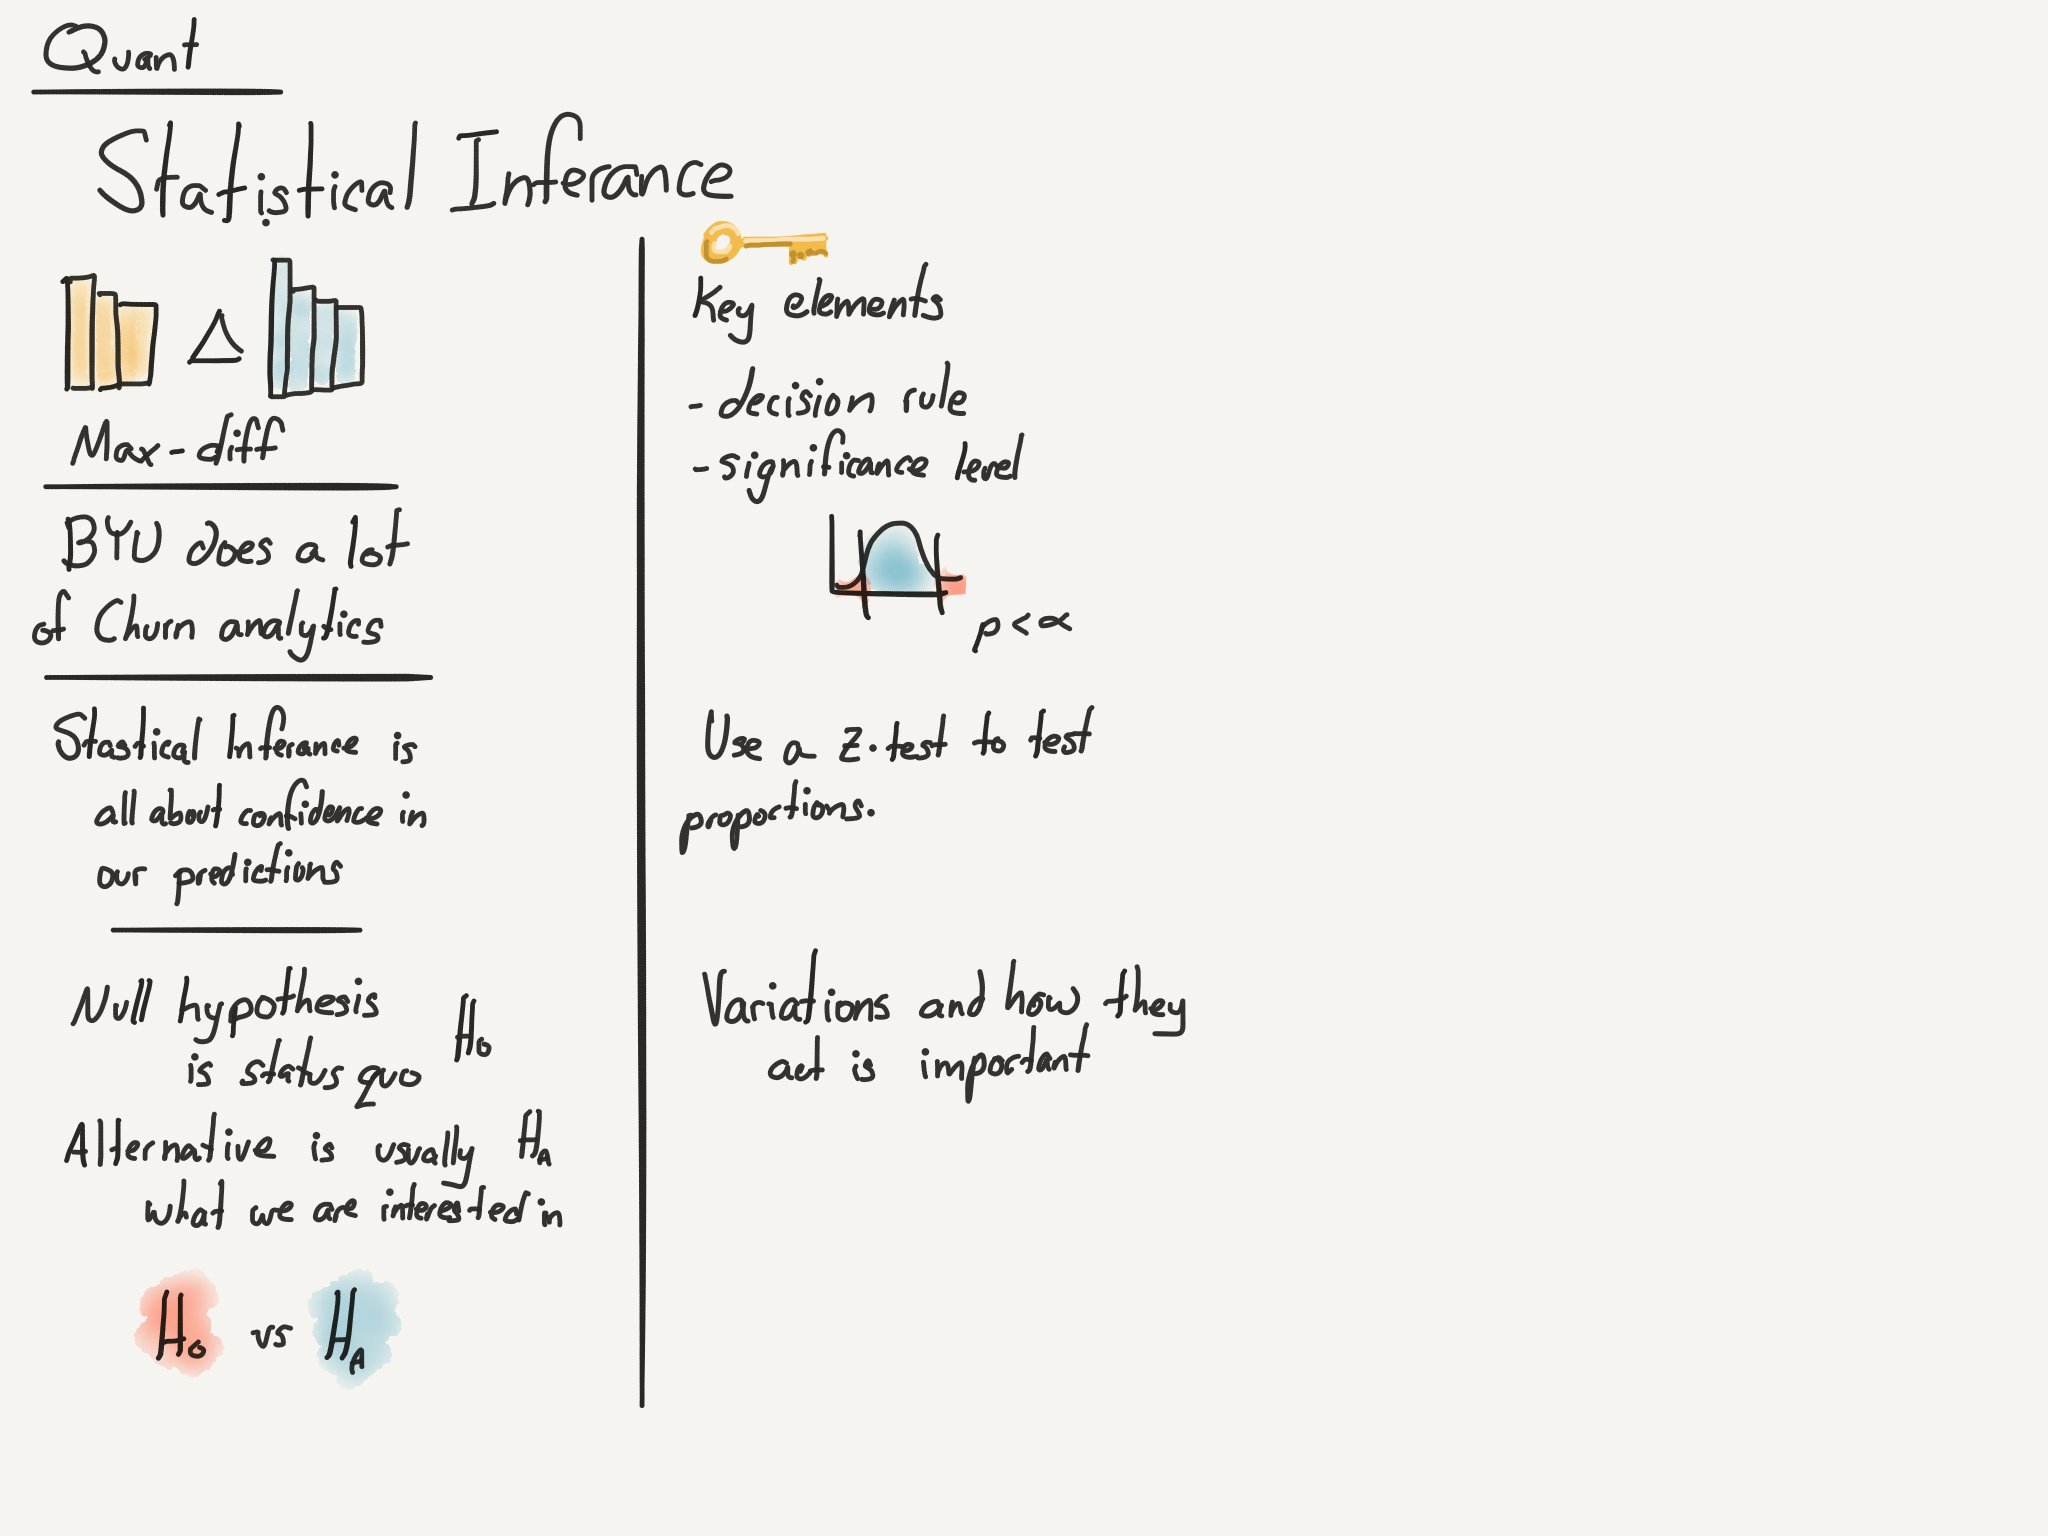 Quant
Statistical Inferance
Δ
Max-diff
BYU does a lot
of Churn analytics
Stastical Inferance is
all about confidence in
our predictions
Null hypothesis
is status quo H₀
Alternative is usually H_A
what we are interested in
H₀ vs H_A
Key elements
- decision rule
- significance level
p < α
Use a z-test to test
proportions.
Variations and how they
act is important